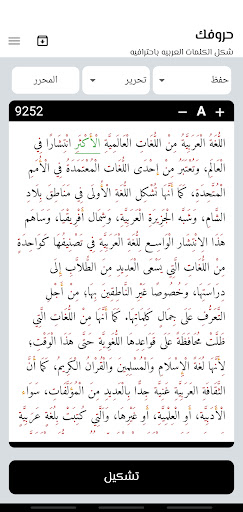 حروفك
شكل الكلمات العربيه باحترافيه
حفظ
تحرير
المحرر
9252 − A +
اللُّغَةُ العَرَبِيَّةُ مِنْ اللُّغَاتِ العَالَمِيَّةِ الْأَكْثَرِ انْتِشَارًا فِي
العَالَمِ، وَتُعْتَبَرُ مِنْ إِحْدَى اللُّغَاتِ المُعْتَمَدَةِ فِي الْأُمَمِ
المُتَّحِدَةِ، كَمَا أَنَّهَا تُشَكِّلُ اللُّغَةَ الْأُولَى فِي مَنَاطِقِ بِلَادِ
الشَّامِ، وَشُبَهِ الجَزِيرَةِ العَرَبِيَّةِ، وَشَمَالِ أَفْرِيقْيَا، وَسَاهَمَ
هٰذَا الِانْتِشَارُ الوَاسِعُ لِلُّغَةِ العَرَبِيَّةِ فِي تَصْنِيفِهَا كَوَاحِدَةٍ
مِنْ اللُّغَاتِ الَّتِي يَسْعَى العَدِيدُ مِنْ الطُّلَّابِ إِلَى
دِرَاسَتِهَا، وَخُصُوصًا غَيْرَ النَّاطِقِينَ بِهَا؛ مِنْ أَجْلِ
التَّعَرُّفِ عَلَى جَمَالِ كَلِمَاتِهَا. كَمَا أَنَّهَا مِنْ اللُّغَاتِ الَّتِي
ظَلَّتْ مُحَافَظَةً عَلَى قَوَاعِدِهَا اللُّغَوِيَّةِ حَتَّى هٰذَا الوَقْتِ؛
لِأَنَّهَا لُغَةُ الْإِسْلَامِ وَالمُسْلِمِينَ وَالقُرْآنِ الكَرِيمِ، كَمَا أَنَّ
الثَّقَافَةَ العَرَبِيَّةَ غَنِيَّةٌ جِدًّا بِالعَدِيدِ مِنْ المُؤَلَّفَاتِ، سَوَاءً
الْأَدَبِيَّةَ، أَوْ العِلْمِيَّةَ، أَوْ غَيْرَهَا، وَالَّتِي كُتِبَتْ بِلُغَةٍ عَرَبِيَّةٍ
تشكيل